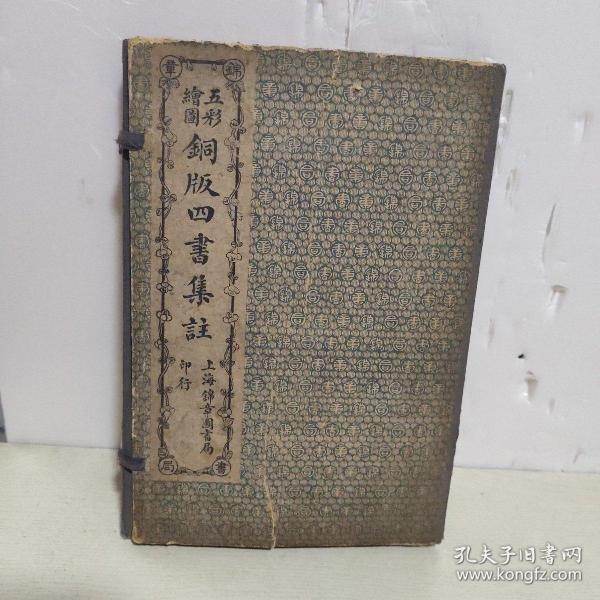 錦章書局
五彩
繪圖
銅版四書集註
上海錦章圖書局
印行
孔夫子旧书网
www.kongfz.com